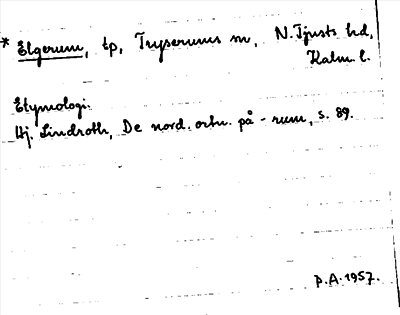 * Elgerum, tp, Tryserums sn, N. Tjusts hd,
Kalm. l.
Etymologi:
Hj. Lindroth, De nord. ortn. på -rum, s. 89.
P.A. 1957.